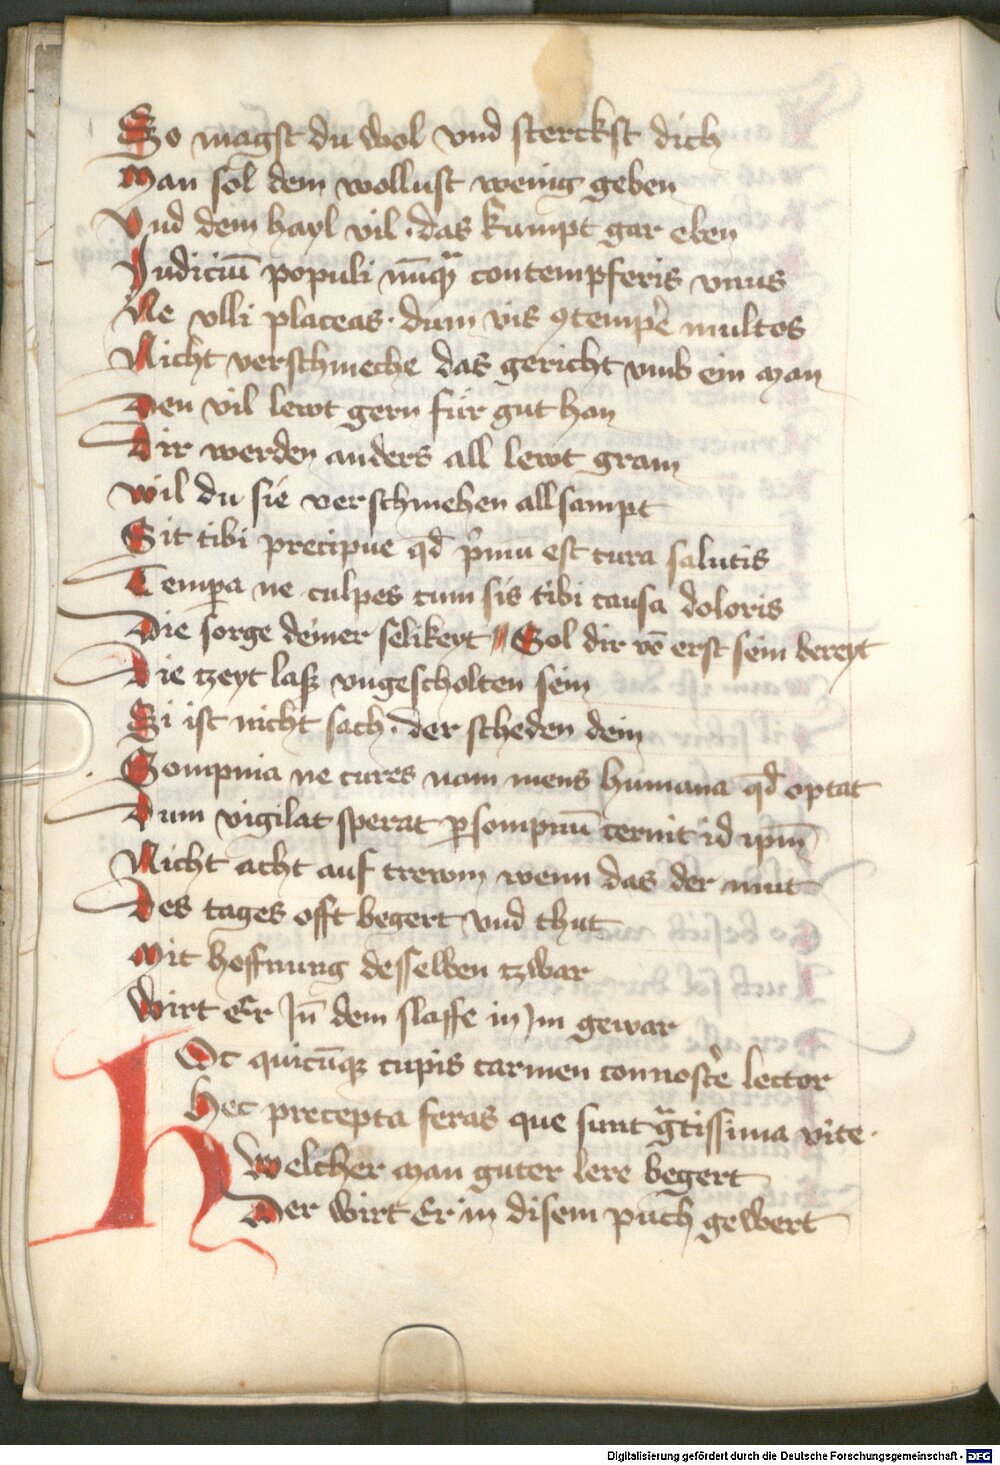 So magst du wol vnd sterckst dich
Man sol dem wollust wenig geben
Vnd dem hayl vil · das kumpt gar eben
Judiciū populi nūq̄ contempseris vnus
Ne vlli placeas · dum vis ꝯtempe͛ multos
Nicht verschmeche das gericht vmb ein man
Den vil lewt gern für gut han
Dir werden anders all lewt gram
Wil du sie verschmehen allsampt
Sit tibi precipue qd̄ p͛mū est cura salutis
Tempa ne culpes cum sis tibi causa doloris
Die sorge deiner selikeyt // Sol dir vō erst sein bereyt
Die tzeyt lasz vngescholten sein
Si ist nicht sach · der scheden dein
Sompnia ne cures nam mens humana qd̄ optat
Dum vigilat sperat ꝑ sompnū cernit id ip̄m
Nicht acht auf trewm wenn das der mut
Des tages offt begert vnd thut
Mit hoffnung desselben tzwar
Wirt Er Jn̄ dem slaffe in Jm gewar
HOc quicūqꝫ cupis carmen connosce͛ lector
Hec precepta feras que sunt gͣtissima vite ·
Welcher man guter lere begert
Der wirt Er in disem puch gewert
Digitalisierung gefördert durch die Deutsche Forschungsgemeinschaft - DFG